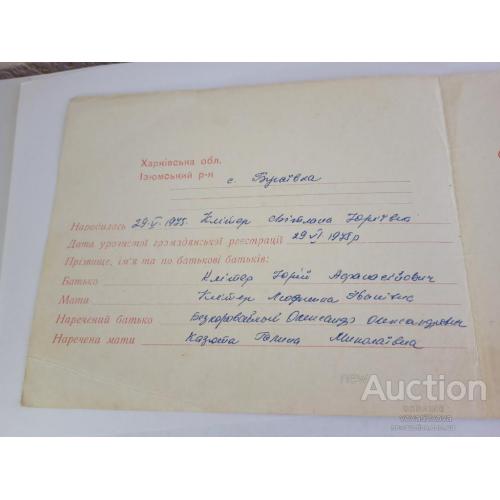 Харківська обл.
Ізюмський р-н
с. Бугаївка
Народилась 29-V-1975. Клітор Світлана Юріївна
Дата урочистої громадянської реєстрації 29 VI 1975 р
Прізвище, ім'я та по батькові батьків:
Батько Клітор Юрій Афанасійович
Мати Клітор Людмила Іванівна
Наречений батько Безкоровайный Олександр Олександрович
Наречена мати Казюта Галина Миколаївна
newAuction
vovastkovua